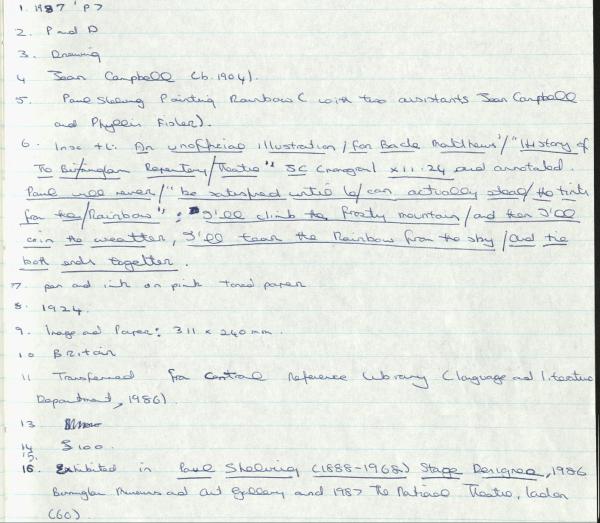 1. 1987 'P7
2. P and D
3. Drawing
4 Joan Campbell (b. 1904).
5. Paul Shelving Painting Rainbow ( with two assistants Joan Campbell
and Phyllis Fisher).
6. Insc t.l: An unofficial illustration / for Bache Matthews' / "History of
The Birmingham Repertory / Theatre" SC (monogram) XII.24 and annotated.
Paul will never / "be satisfied until he / can actually steal / the tints
from the / Rainbow": I'll climb the frosty mountain / and there I'll
coin the weather, I'll tear the Rainbow from the sky / And tie
both ends together.
7. pen and ink on pink toned paper
8. 1924.
9. Image and Paper: 311 x 240 mm.
10 Britain
11 Transferred from Central Reference Library (language and literature
Department, 1986).
13.
14 £100.
15.
16. Exhibited in Paul Shelving (1888-1968) Stage Designer, 1986
Birmingham Museums and Art Gallery and 1987 The National Theatre, London
(60).